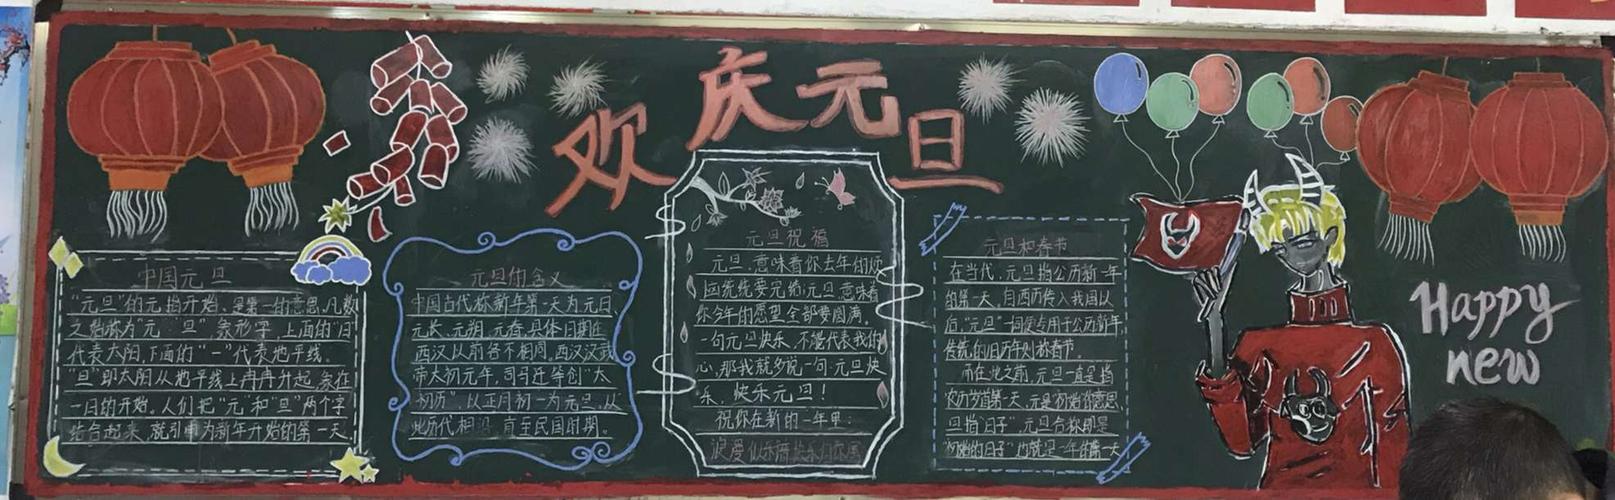 欢庆元旦
中国元旦
"元旦"的元指开始,是第一的意思,凡数
之始称为"元""旦"象形字,上面的"日"
代表太阳,下面的"一"代表地平线。
"旦"即太阳从地平线上冉冉升起,象征
一日的开始。人们把"元"和"旦"两个字
结合起来,就引申为新年开始的第一天
元旦的含义
中国古代称新年第一天为元日、
元长、元朔、元春,具体日期在
西汉以前各不相同,西汉汉武
帝太初元年,司马迁等创"太
初历",以正月初一为元旦,从
此历代相沿 直至民国时期。
元旦祝福
元旦,意味着你去年的烦
恼统统要完蛋;元旦,意味着
你今年的愿望全部要圆满。
一句元旦快乐,不能代表我的
心,那我就多说一句元旦快
乐,快乐元旦!
祝你在新的一年里:
元旦和春节
在当代,元旦指公历新一年
的第一天,自西历传入我国以
后,"元旦"一词便专用于公历新年,
传统的旧历年则称春节。
而在此之前,元旦一直是指
农历岁首第一天,元是初始的意思,
旦指"日子",元旦合称即是
"初始的日子"也就是一年的第一天
Happy
new